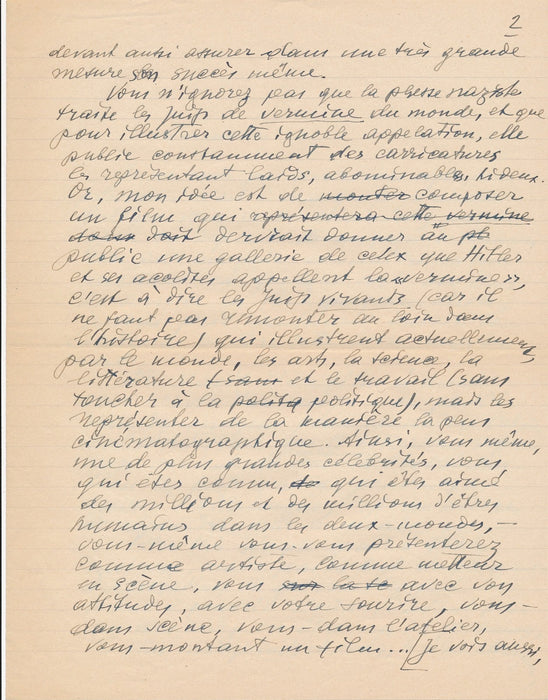 2
devant aussi assurer dans une très grande
mesure son succès même.
Vous n'ignorez pas que la presse naziste
traite les Juifs de vermine du monde, et que
pour illustrer cette ignoble appelation, elle
publie constamment des carricatures
les représentant laids, abominables, hideux.
Or, mon idée est de monter composer
un film qui représentera cette vermine
dans doit devrait donner au pu
public une gallerie de ceux que Hitler
et ses acolites appellent la "vermine",
c'est à dire les Juifs vivants (car il
ne faut pas remonter au loin dans
l'histoire) qui illustrent actuellement
par le monde, les arts, la science, la
littérature et le travail (sans
toucher à la politiq politique), mais les
représenter de la manière la plus
cinématographique. Ainsi, vous même,
une de plus grandes célébrités, vous
qui êtes connu, qui êtes aimé
des millions et des millions d'êtres
humains dans les deux-mondes, –
vous-même vous-vous présenterez
comme artiste, comme metteur
en scène, vous avec vos
attitudes, avec votre sourire, vous-
dans scène, vous-dans l'atelier,
vous-montant un film... (je vois aussi,